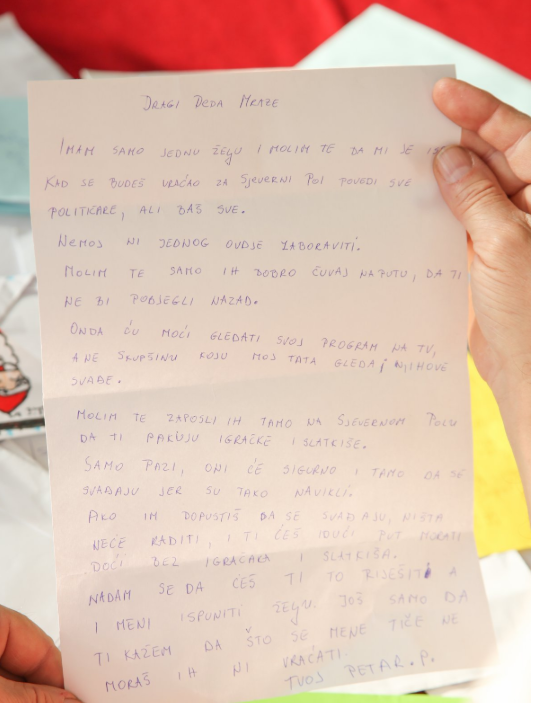 DRAGI DEDA MRAZE
IMAM SAMO JEDNU ŽEGU I MOLIM TE DA MI JE
KAD SE BUDEŠ VRAĆAO ZA SJEVERNI POL POVEDI SVE
POLITIČARE, ALI BAŠ SVE.
NEMOJ NI JEDNOG OVDJE ZABORAVITI.
MOLIM TE SAMO IH DOBRO ČUVAJ NA PUTU, DA TI
NE BI PODJEGLI NAZAD.
ONDA ĆU MOĆI GLEDATI SVOJ PROGRAM NA TV,
A NE SKUPŠINU KOJU MOJ TATA GLEDA I NJIHOVE
SVAĐE.
MOLIM TE ZAPOSLI IH TAMO NA SJEVERNOM POLU
DA TI PAKUJU IGRAČKE I SLATKIŠE.
SAMO PAZI, ONI ĆE SIGURNO I TAMO DA SE
SVAĐAJU JER SU TAKO NAVIKLI.
AKO IM DOPUSTIŠ DA SE SVAĐAJU, NIŠTA
NEĆE RADITI, I TI ĆEŠ IDUĆI PUT MORATI
DOĆI BEZ IGRAČAKA I SLATKIŠA.
NADAM SE DA ĆEŠ TI TO RIJEŠITI A
I MENI ISPUNITI ŽEGU. JOŠ SAMO DA
TI KAŽEM DA ŠTO SE MENE TIČE NE
MORAŠ IH NI VRAĆATI.
TVOJ PETAR.P.